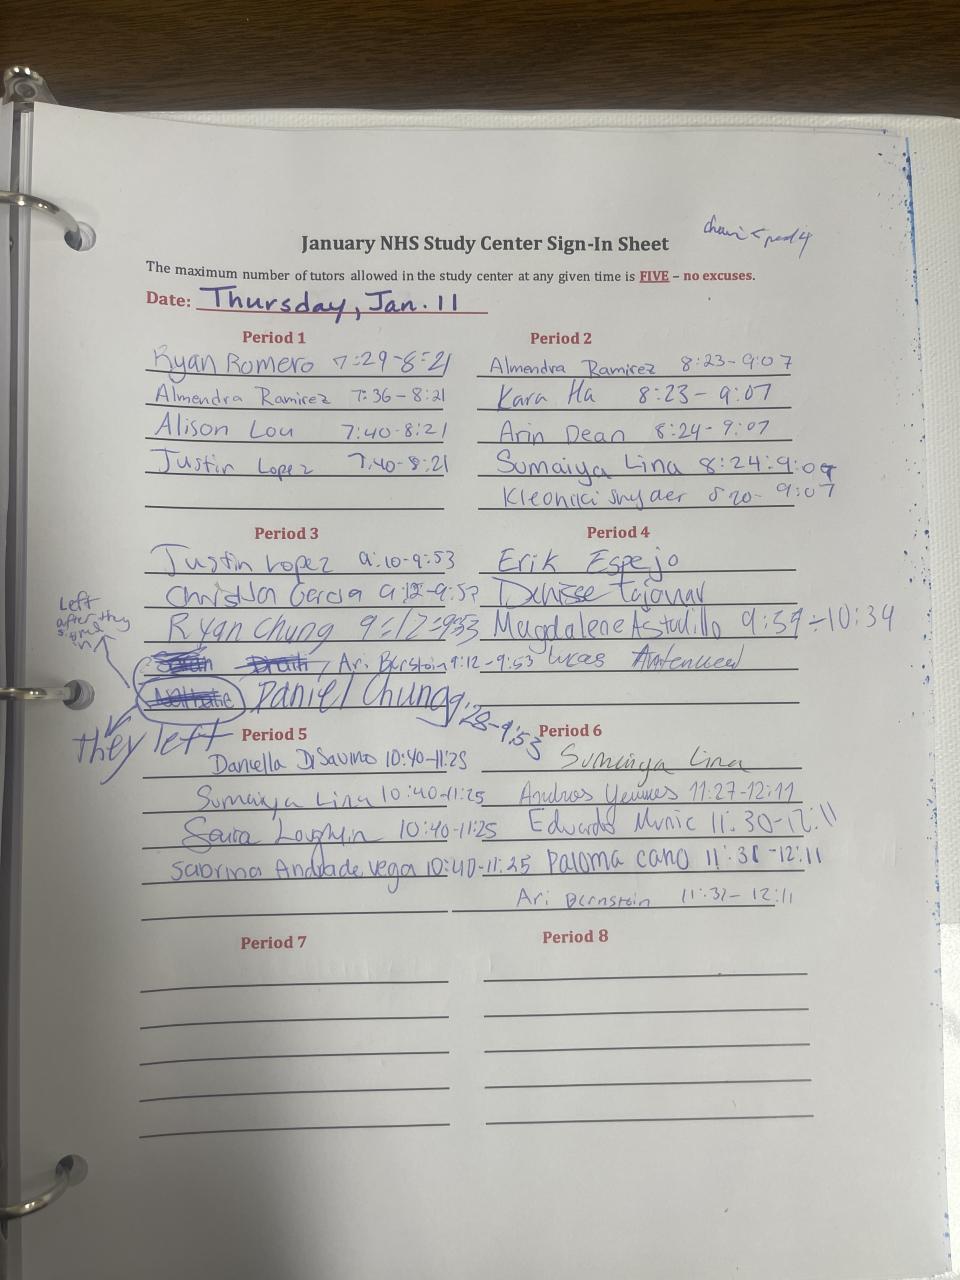 January NHS Study Center Sign-In Sheet
The maximum number of tutors allowed in the study center at any given time is FIVE – no excuses.
Date: Thursday, Jan. 11
Period 1
Ryan Romero 7:29-8:21
Almendra Ramirez 7:36-8:21
Alison Lou 7:40-8:21
Justin Lopez 7:40-8:21
Period 2
Almendra Ramirez 8:23-9:07
Kara Ha 8:23-9:07
Arin Dean 8:24-9:07
Sumaiya Lina 8:24-9:07
Kleoniki Snyder 8:20-9:07
Period 3
Justin Lopez 9:10-9:53
Garcia 9:12-9:53
Ryan Chung 9:12-9:53
Ari Bernstein 9:12-9:53
Daniel Chung 9:28-9:53
Left after they signed in
they left
Period 4
Erik Espejo
Denisse
Magdalene Astudillo 9:59-10:34
Lucas
Period 5
Daniella DiSavino 10:40-11:25
Sumaiya Lina 10:40-11:25
Saira Loughlin 10:40-11:25
Sabrina Andrade Vega 10:40-11:25
Period 6
Sumaiya Lina
11:27-12:11
Eduardo 11:30-12:11
Paloma Cano 11:31-12:11
Ari Bernstein 11:31-12:11
Period 7
Period 8